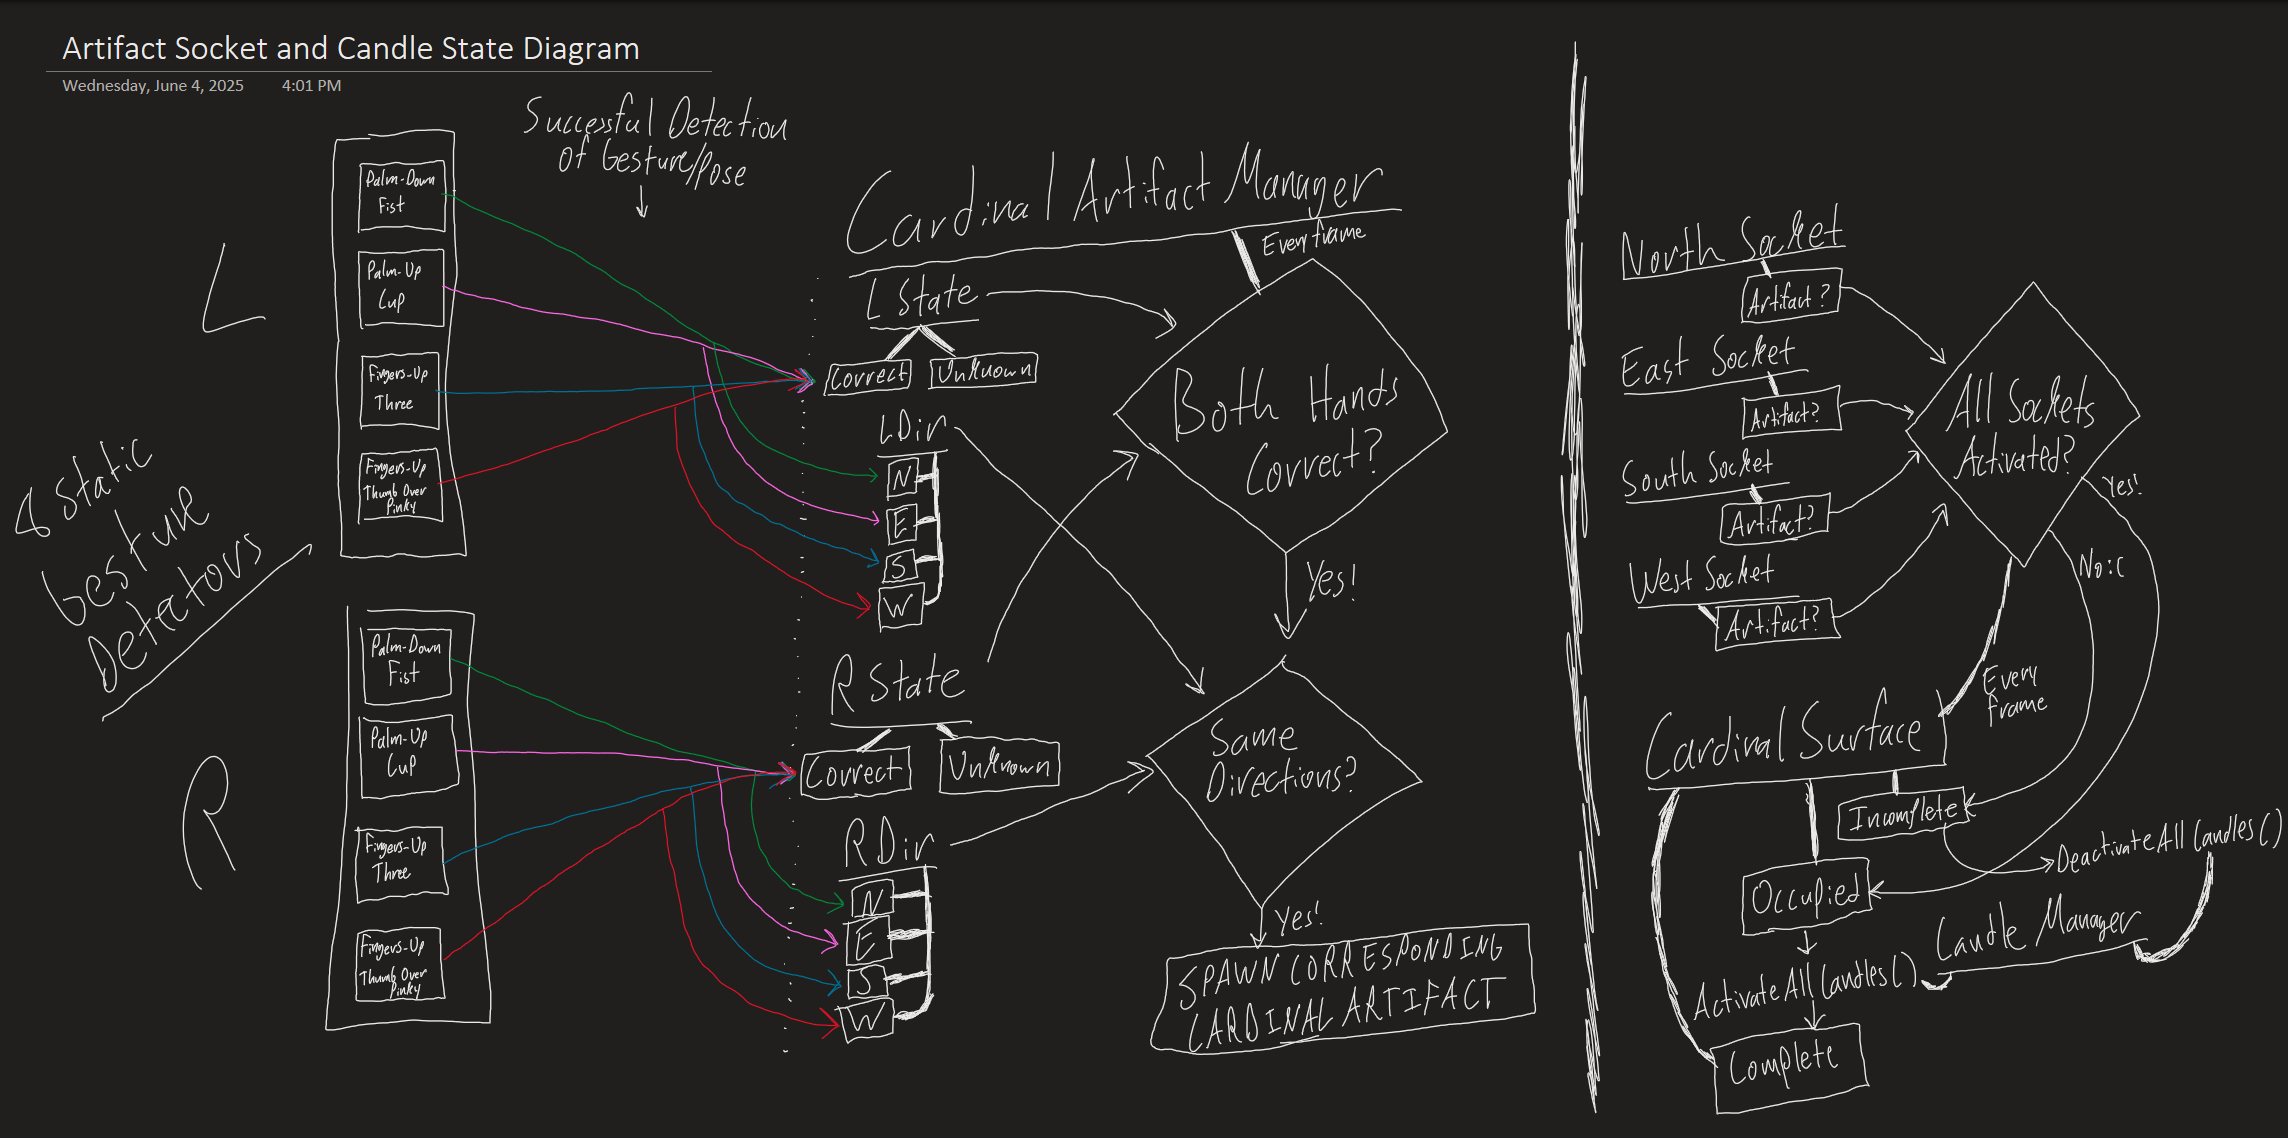 Artifact Socket and Candle State Diagram
Wednesday, June 4, 2025 4:01 PM
Successful Detection
of Gesture/Pose
8 Static
Gesture
Detectors
L
Palm-Down
Fist
Palm-Up
Cup
Fingers-Up
Three
Fingers-Up
Thumb Over
Pinky
R
Palm-Down
Fist
Palm-Up
Cup
Fingers-Up
Three
Fingers-Up
Thumb Over
Pinky
Cardinal Artifact Manager
Every frame
L State
Correct
Unknown
L Dir
N
E
S
W
R State
Correct
Unknown
R Dir
N
E
S
W
Both Hands
Correct?
Yes!
Same
Directions?
Yes!
SPAWN CORRESPONDING
CARDINAL ARTIFACT
North Socket
Artifact?
East Socket
Artifact?
South Socket
Artifact?
West Socket
Artifact?
All Sockets
Activated?
Yes!
No :(
Every
frame
Cardinal Surface
Incomplete
DeactivateAllCandles()
Occupied
Candle Manager
ActivateAllCandles()
Complete